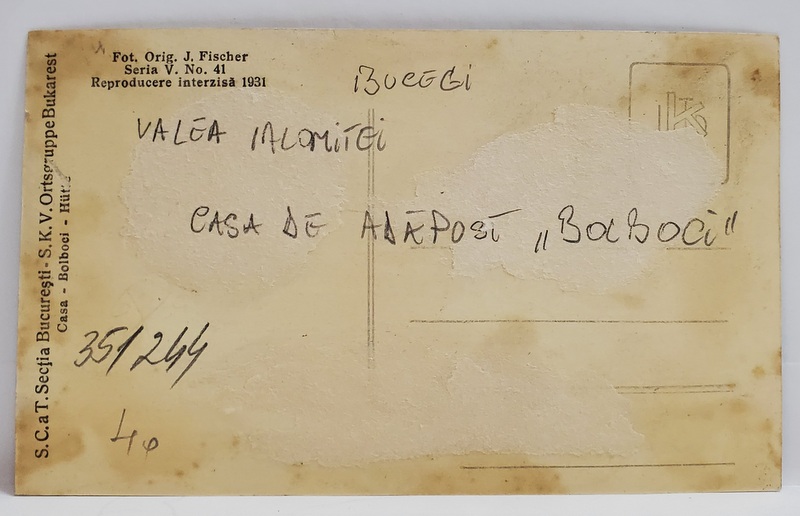 Fot. Orig. J. Fischer
Seria V. No. 41
Reproducere interzisă 1931
BUCEGI
VALEA IALOMIŢEI
CASA DE ADĂPOST „BOLBOCI"
S. C. a T. Secţia Bucureşti - S. K. V. Ortsgruppe Bukarest
Casa - Bolboci - Hütte
351/244